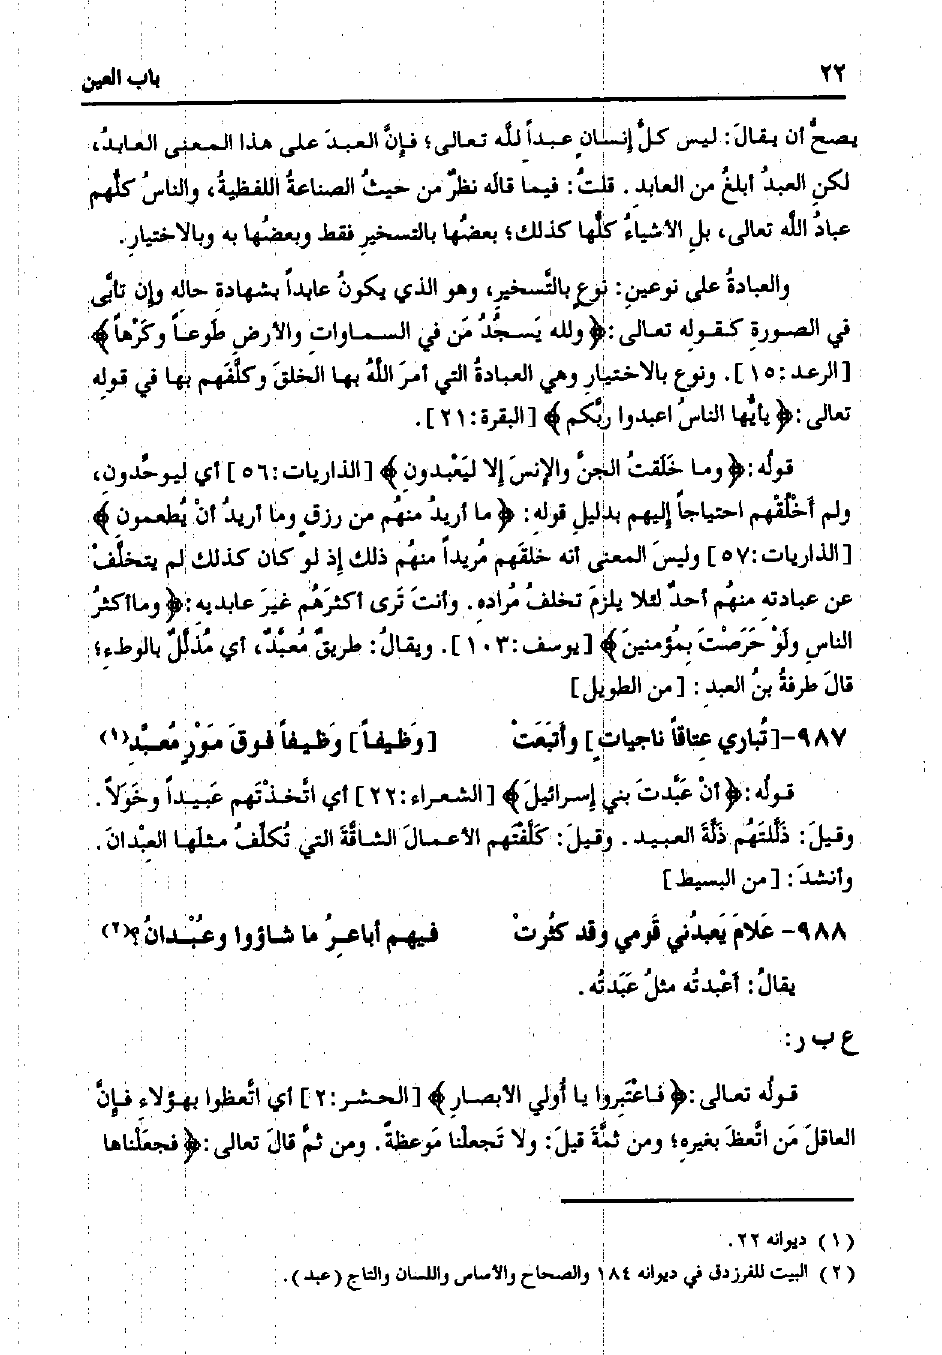 ٢٢ باب العين
يصحُّ أن يقالَ: ليس كلُّ إنسانٍ عبداً للَّه تعالى؛ فإنَّ العبدَ على هذا المعنى العابدُ،
لكنِ العبدُ أبلغُ من العابد. قلتُ: فيما قالَه نظرٌ من حيثُ الصناعةُ اللفظيةُ، والناسُ كلُّهم
عبادُ اللَّه تعالى، بلِ الأشياءُ كلُّها كذلك؛ بعضُها بالتسخيرِ فقط وبعضُها به وبالاختيارِ.
والعبادةُ على نوعينِ: نوعٍ بالتَّسخيرِ، وهو الذي يكونُ عابداً بشهادةِ حالِه وإن تابَّى
في الصورةِ كقوله تعالى: ﴿ ولله يَسجُدُ مَن في السماواتِ والأرضِ طَوعاً وكَرْهاً ﴾
[الرعد: ١٥]. ونوعٍ بالاختيارِ وهي العبادةُ التي أمرَ اللَّهُ بها الخلقَ وكلَّفَهم بها في قولِه
تعالى: ﴿ يأيُّها الناسُ اعبدوا ربَّكم ﴾ [البقرة: ٢١].
قولُه: ﴿ وما خَلَقتُ الجنَّ والإنسَ إلا ليَعْبدونِ ﴾ [الذاريات: ٥٦] أي ليوحِّدونِ،
ولم أَخْلُقْهم احتياجاً إليهم بدليلِ قولِه: ﴿ ما أريدُ منهُم من رزقٍ وما أريدُ أنْ يُطعمونِ ﴾
[الذاريات: ٥٧] وليسَ المعنى أنه خلقَهم مُريداً منهُم ذلك إذ لو كان كذلك لم يتخلَّفْ
عن عبادتِه منهُم أحدٌ لئلا يلزمَ تخلفُ مُرادِه. وأنتَ تَرى أكثرَهُم غيرَ عابديه: ﴿ وما أكثرُ
الناسِ ولَوْ حَرَصْتَ بِمُؤمنينَ ﴾ [يوسف: ١٠٣]. ويقالُ: طريقٌ مُعبَّدٌ، أي مُذلَّلٌ بالوطءِ؛
قالَ طرفةُ بنُ العبد: [من الطويل]
٩٨٧- [تُباري عِتاقاً ناجياتٍ] وأتبَعَتْ [وَظيفاً] وَظيفاً فوقَ مَوْرٍ مُعبَّدِ(١)
قولُه: ﴿ أنْ عَبَّدتَ بني إسرائيلَ ﴾ [الشعراء: ٢٢] أي اتَّخذْتَهم عَبيداً وخَوَلاً.
وقيلَ: ذَلَّلتَهُم ذلَّةَ العبيد. وقيلَ: كَلَّفْتَهم الأعمالَ الشاقَّةَ التي تُكلَّفُ مثلَها العبْدانَ.
وأنشدَ: [من البسيط]
٩٨٨- عَلامَ يَعبدُني قَومي وقد كثُرتْ فيهم أباعرُ ما شاؤوا وعُبْدانُ؟(٢)
يقالُ: أَعْبدتُه مثلُ عَبَدتُه.
ع ب ر:
قولُه تعالى: ﴿ فاعْتَبِروا يا أُولي الأبصارِ ﴾ [الحشر: ٢] أي اتَّعظوا بهؤلاءِ فإنَّ
العاقلَ مَن اتَّعظَ بغيرِه؛ ومن ثمَّةَ قيلَ: ولا تَجعلْنا مَوعظةً. ومن ثمَّ قالَ تعالى: ﴿ فجعَلْناها
(١) ديوانه ٢٢.
(٢) البيت للفرزدق في ديوانه ١٨٤ والصحاح والأساس واللسان والتاج (عبد).